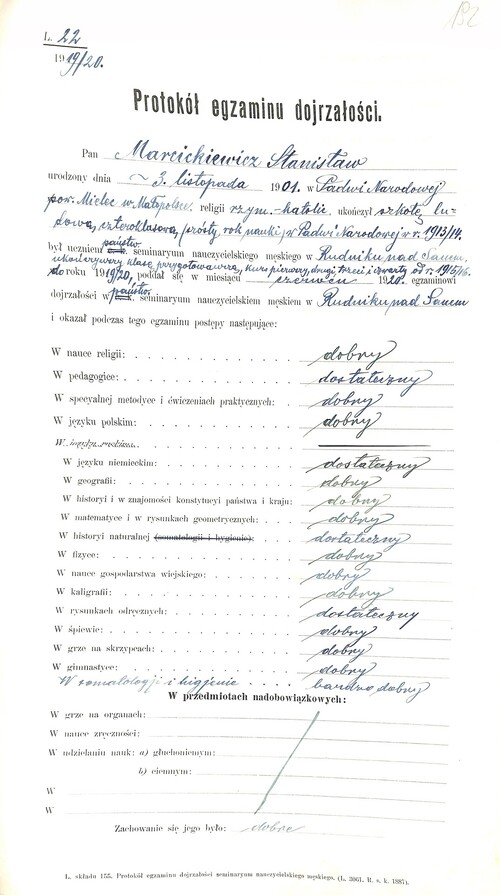 192
L. 22
1919/20.
Protokół egzaminu dojrzałości.
Pan Marcickiewicz Stanisław
urodzony dnia 3. listopada 1901. w Padwi Narodowej
pow. Mielec w Małopolsce. religii rzym.-katolic. ukończył szkołę lu-
dową, czteroklasową, (szósty rok nauki) w Padwi Narodowej w r. 1913/14.
był uczniem państw. seminaryum nauczycielskiego męskiego w Rudniku nad Sanem.
ukończywszy klasę przygotowawczą, kurs pierwszy, drugi, trzeci i czwarty od r. 1915/16.
do roku 1919/20, poddał się w miesiącu czerwcu 1920. egzaminowi
dojrzałości w państw. seminaryum nauczycielskiem męskiem w Rudniku nad Sanem
i okazał podczas tego egzaminu postępy następujące:
W nauce religii: dobry
W pedagogice: dostateczny
W specyalnej metodyce i ćwiczeniach praktycznych: dobry
W języku polskim: dobry
W języku ruskim:
W języku niemieckim: dostateczny
W geografii: dobry
W historyi i w znajomości konstytucyi państwa i kraju: dobry
W matematyce i w rysunkach geometrycznych: dobry
W historyi naturalnej (somatologii i hygienie): dostateczny
W fizyce: dobry
W nauce gospodarstwa wiejskiego: dobry
W kaligrafii: dobry
W rysunkach odręcznych: dostateczny
W śpiewie: dobry
W grze na skrzypcach: dobry
W gimnastyce: dobry
W somatologji i higjenie bardzo dobry
W przedmiotach nadobowiązkowych:
W grze na organach:
W nauce zręczności:
W udzielaniu nauk: a) głuchoniemym:
b) ciemnym:
W
W
Zachowanie się jego było: dobre
L. składu 155. Protokół egzaminu dojrzałości seminaryum nauczycielskiego męskiego. (L. 3061. R. s. k. 1887).